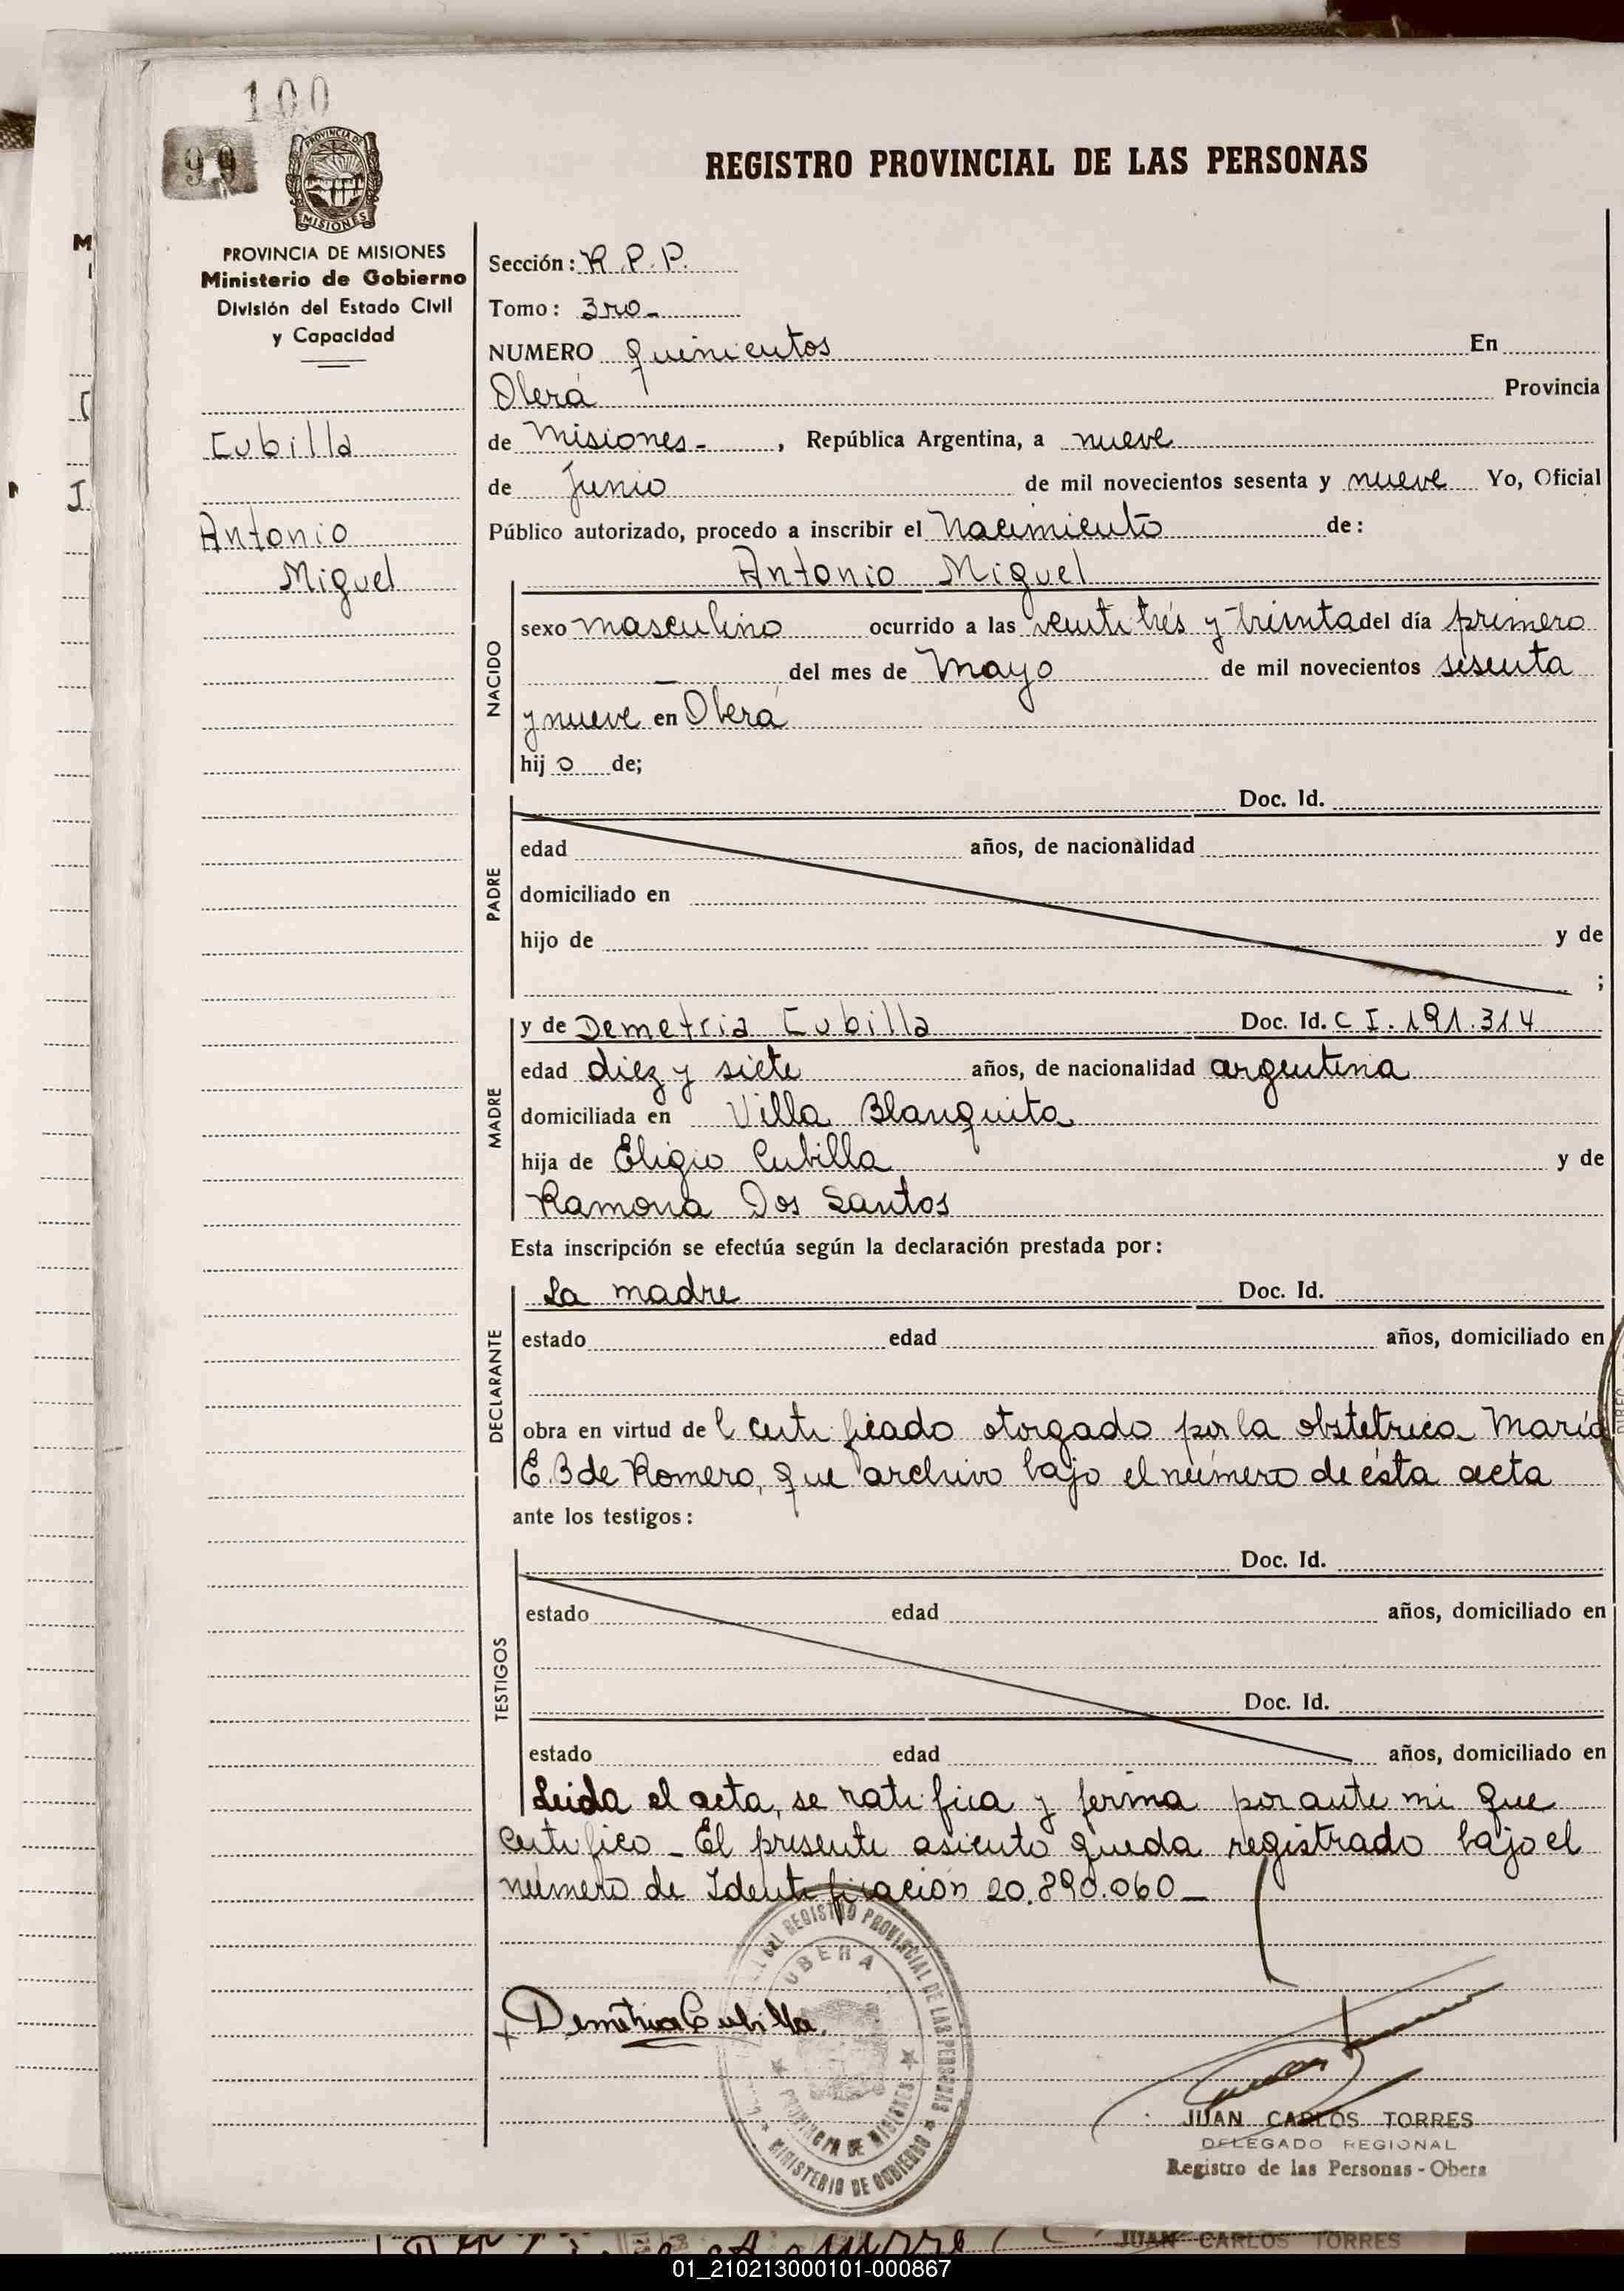 100
99
PROVINCIA DE
MISIONES
REGISTRO PROVINCIAL DE LAS PERSONAS
PROVINCIA DE MISIONES
Ministerio de Gobierno
División del Estado Civil
y Capacidad
Cubilla
Antonio
Miguel
Sección: R.P.P.
Tomo: 3ro-
NUMERO quinientos En
Oberá Provincia
de Misiones-, República Argentina, a nueve
de Junio de mil novecientos sesenta y nueve Yo, Oficial
Público autorizado, procedo a inscribir el Nacimiento de:
NACIDO
Antonio Miguel
sexo masculino ocurrido a las veinti trés y treinta del día primero
— del mes de Mayo de mil novecientos sesenta
y nueve en Oberá
hij o de;
PADRE
Doc. Id.
edad años, de nacionalidad
domiciliado en
hijo de y de
;
MADRE
y de Demetria Cubilla Doc. Id. C I. 191.314
edad diez y siete años, de nacionalidad argentina
domiciliada en Villa Blanquita
hija de Eligio Cubilla y de
Ramona Dos Santos
Esta inscripción se efectúa según la declaración prestada por:
DECLARANTE
La madre Doc. Id.
estado edad años, domiciliado en
obra en virtud de l certificado otorgado por la obstétrica María
E. B de Romero, que archivo bajo el número de ésta acta
ante los testigos:
TESTIGOS
Doc. Id.
estado edad años, domiciliado en
Doc. Id.
estado edad años, domiciliado en
Leida el acta, se ratifica y firma por ante mi que
certifico - El presente asiento queda registrado bajo el
número de Identificación 20.890.060-
DEL REGISTRO PROVINCIAL DE LAS PERSONAS
OBERA
PROVINCIA DE MISIONES
MINISTERIO DE GOBIERNO
Demetria Cubilla.
JUAN CARLOS TORRES
DELEGADO REGIONAL
Registro de las Personas - Obera
JUAN CARLOS TORRES
01_210213000101-000867